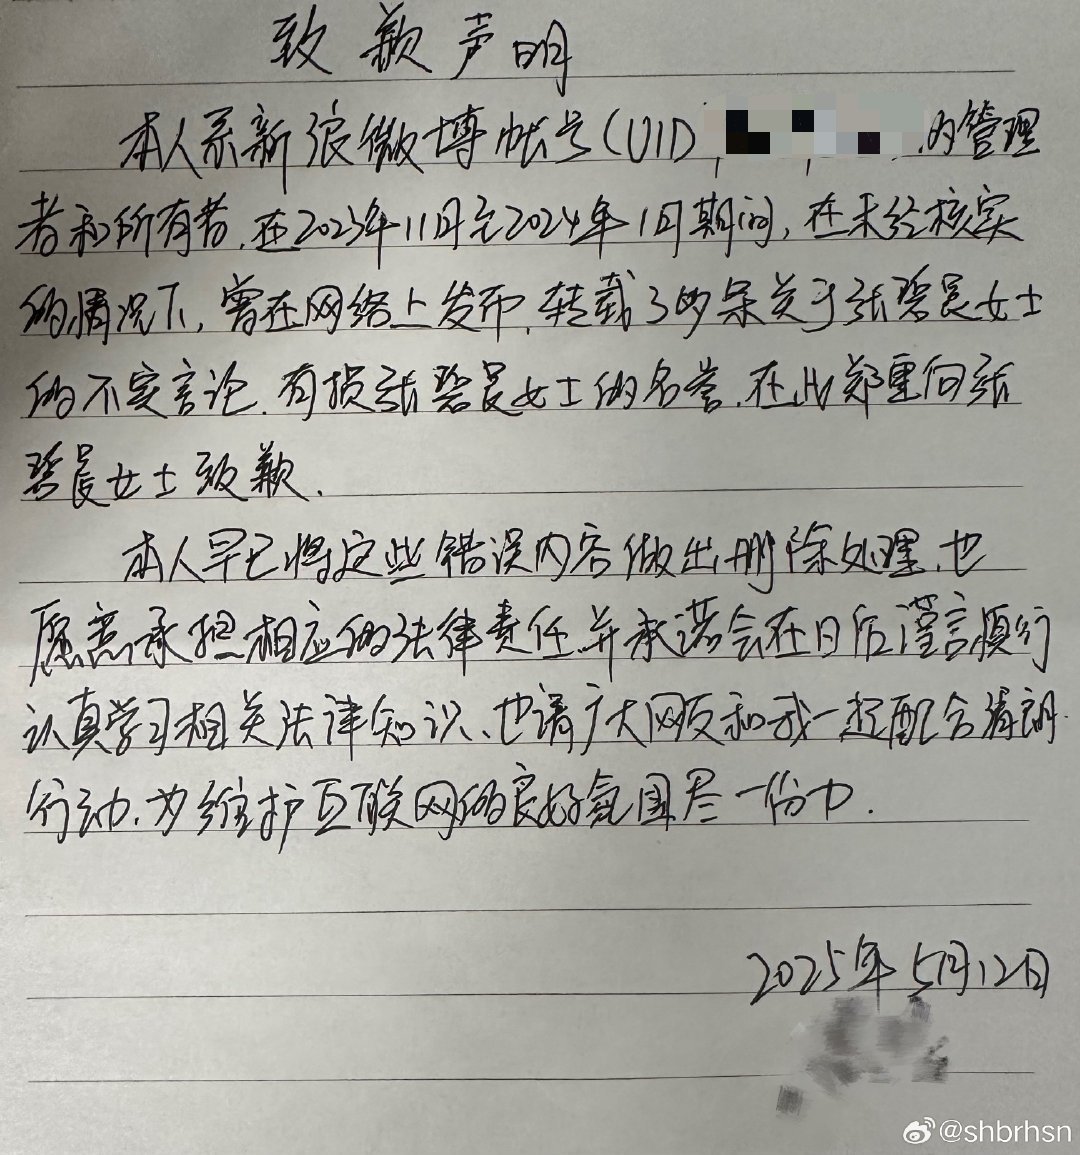 致歉声明
本人系新浪微博帐号(UID 的管理
者和所有者,在2023年11月至2024年1月期间,在未经核实
的情况下,曾在网络上发布,转载了多条关于张碧晨女士
的不实言论,有损张碧晨女士的名誉,在此郑重向张
碧晨女士致歉.
本人早已将这些错误内容做出删除处理,也
愿意承担相应的法律责任,并承诺会在日后谨言慎行
认真学习相关法律知识、也请广大网友和我一起配合清朗
行动,为维护互联网的良好氛围尽一份力.
2025年5月12日
@shbrhsn